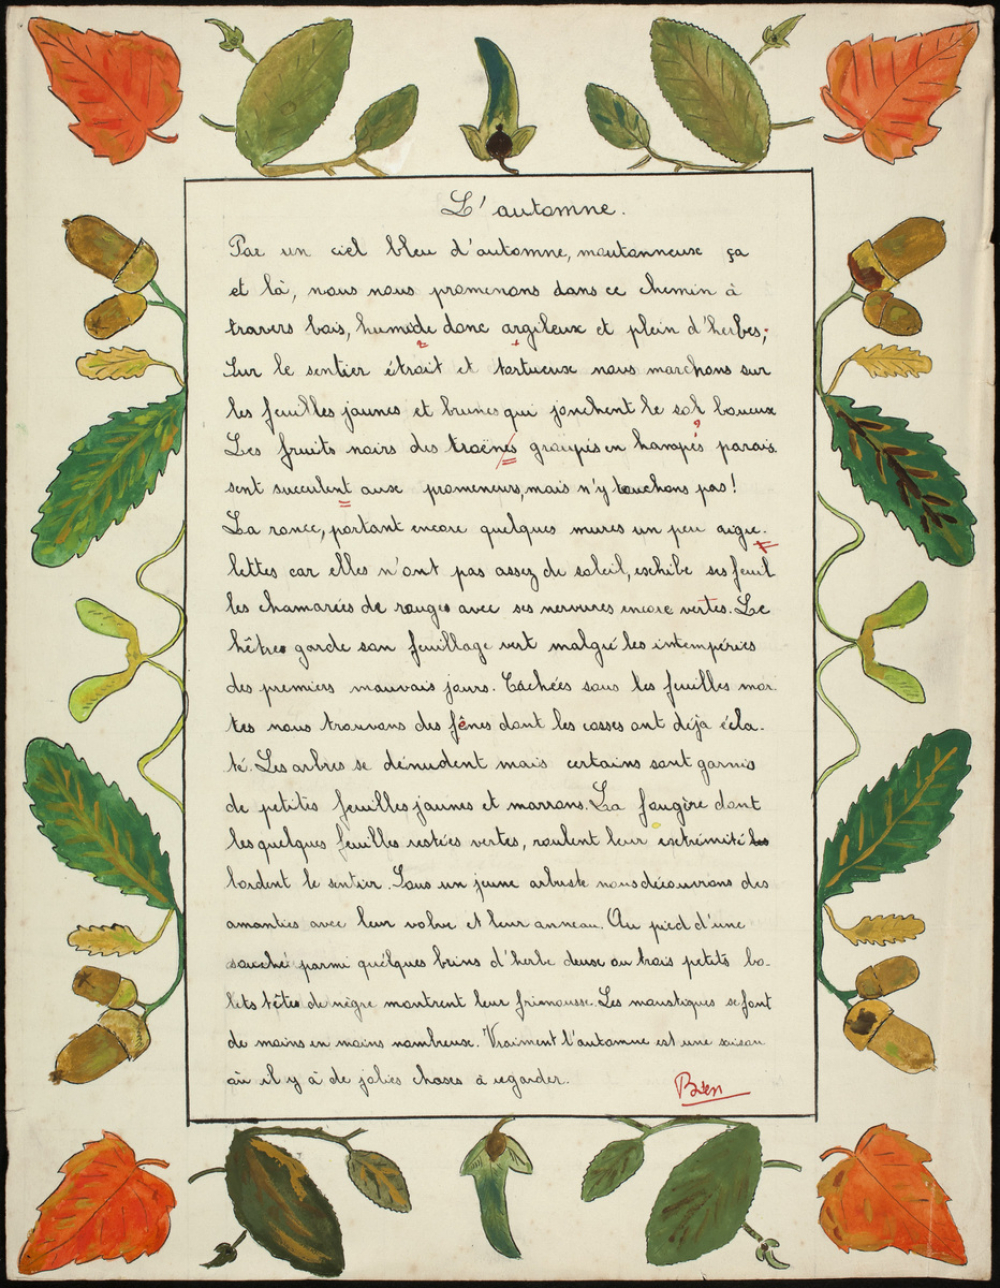 L'automne.
Par un ciel bleu d'automne, moutonneux ça
et là, nous nous promenons dans ce chemin à
travers bois, humide donc argileux et plein d'herbes;
Sur le sentier étroit et tortueux nous marchons sur
les feuilles jaunes et brunes qui jonchent le sol boueux
Les fruits noirs des troënes groupés en hampes parais
sent succulent aux promeneurs, mais n'y touchons pas!
La ronce, portant encore quelques mures un peu aigre-
lettes car elles n'ont pas assez de soleil, exhibe ses feuil
les chamarées de rouge avec ses nervures encore vertes. Le
hêtre garde son feuillage vert malgré les intempéries
des premiers mauvais jours. Cachées sous les feuilles mor
tes nous trouvons des fênes dont les cosses ont déja écla-
té. Les arbres se dénudent mais certains sont garnis
de petites feuilles jaunes et marrons. La fougère dont
les quelques feuilles restées vertes, roulent leur extrémité les
bordent le sentier. Sous un jeune arbuste nous découvrons des
amanties avec leur volve et leur anneau. Au pied d'une
souche parmi quélques brins d'herbe deux ou trois petits bo-
lets têtes de nègre montrent leur frimousse. Les moustiques se font
de moins en moins nombreux. Vraiment l'automne est une saison
où il y à de jolies choses à regarder.
Bien